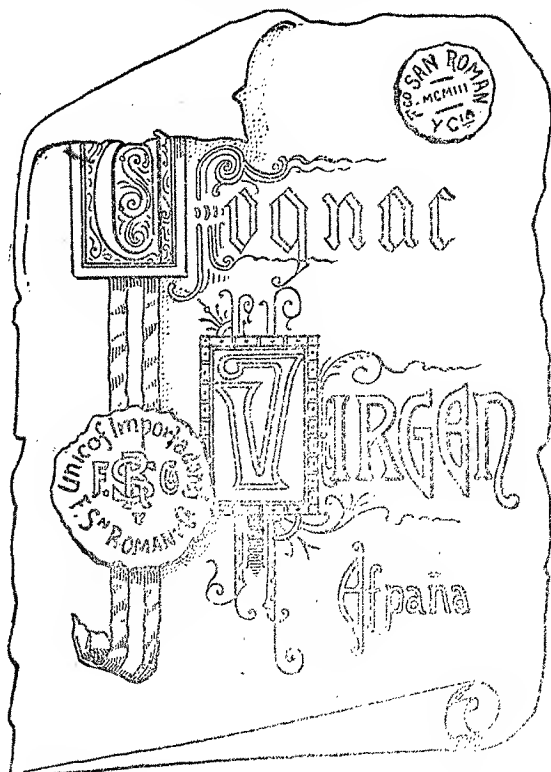 Fco SAN ROMAN
MCMIII
Y Cia
Cognac
VIRGEN
Unicos Importadores
F. Sn ROMAN y Ca
España